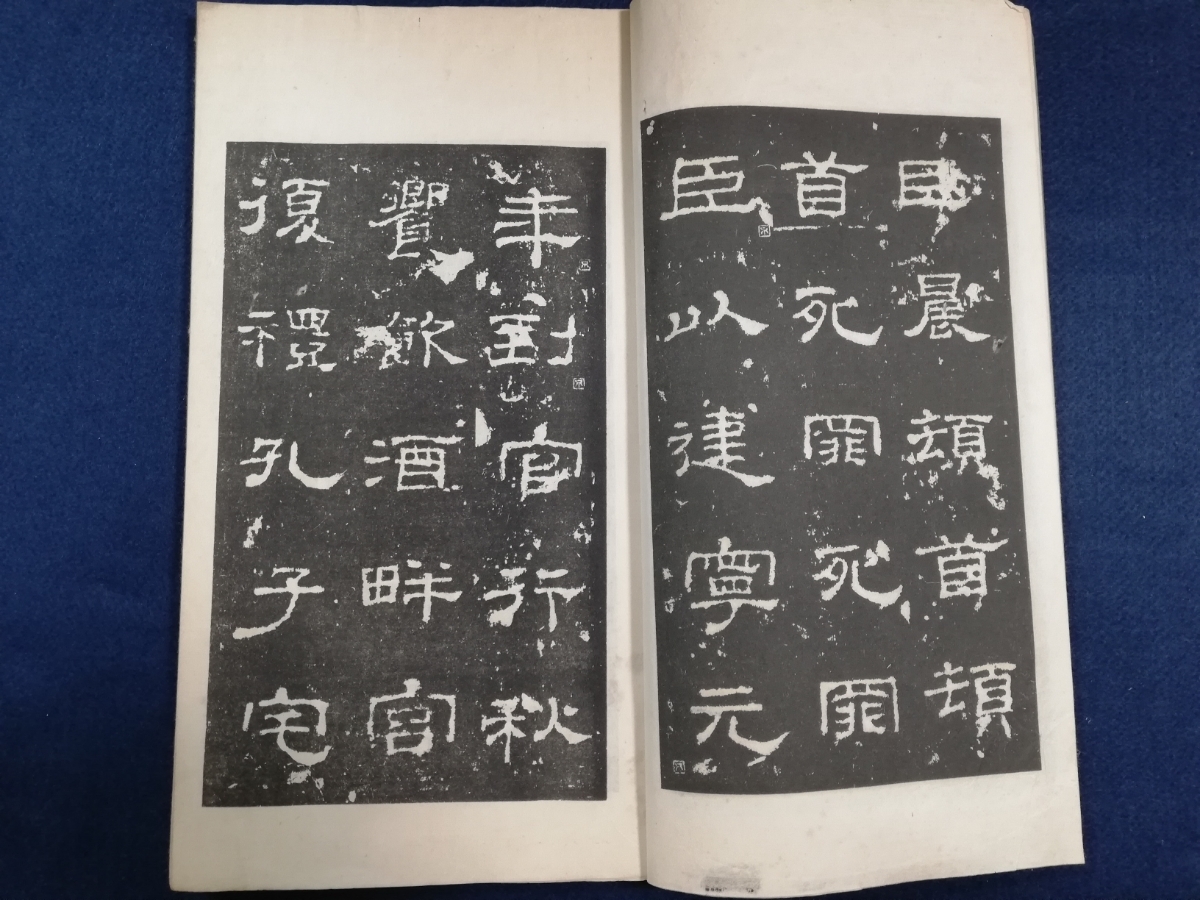 臣晨頓首頓
首死罪死罪
臣以建寧元
年到官行秋
饗飲酒畔宮
復禮孔子宅